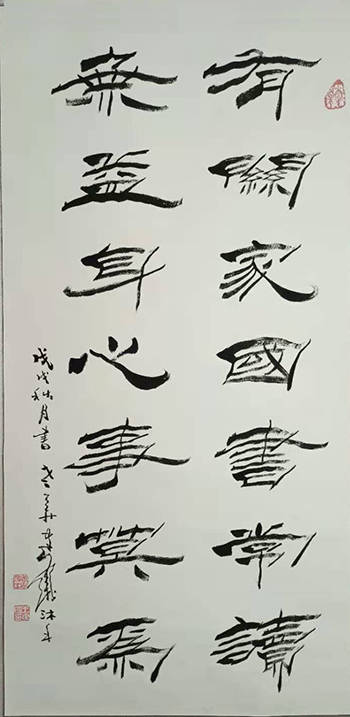 有關家國書常讀
無益身心事莫為
戊戌秋月書